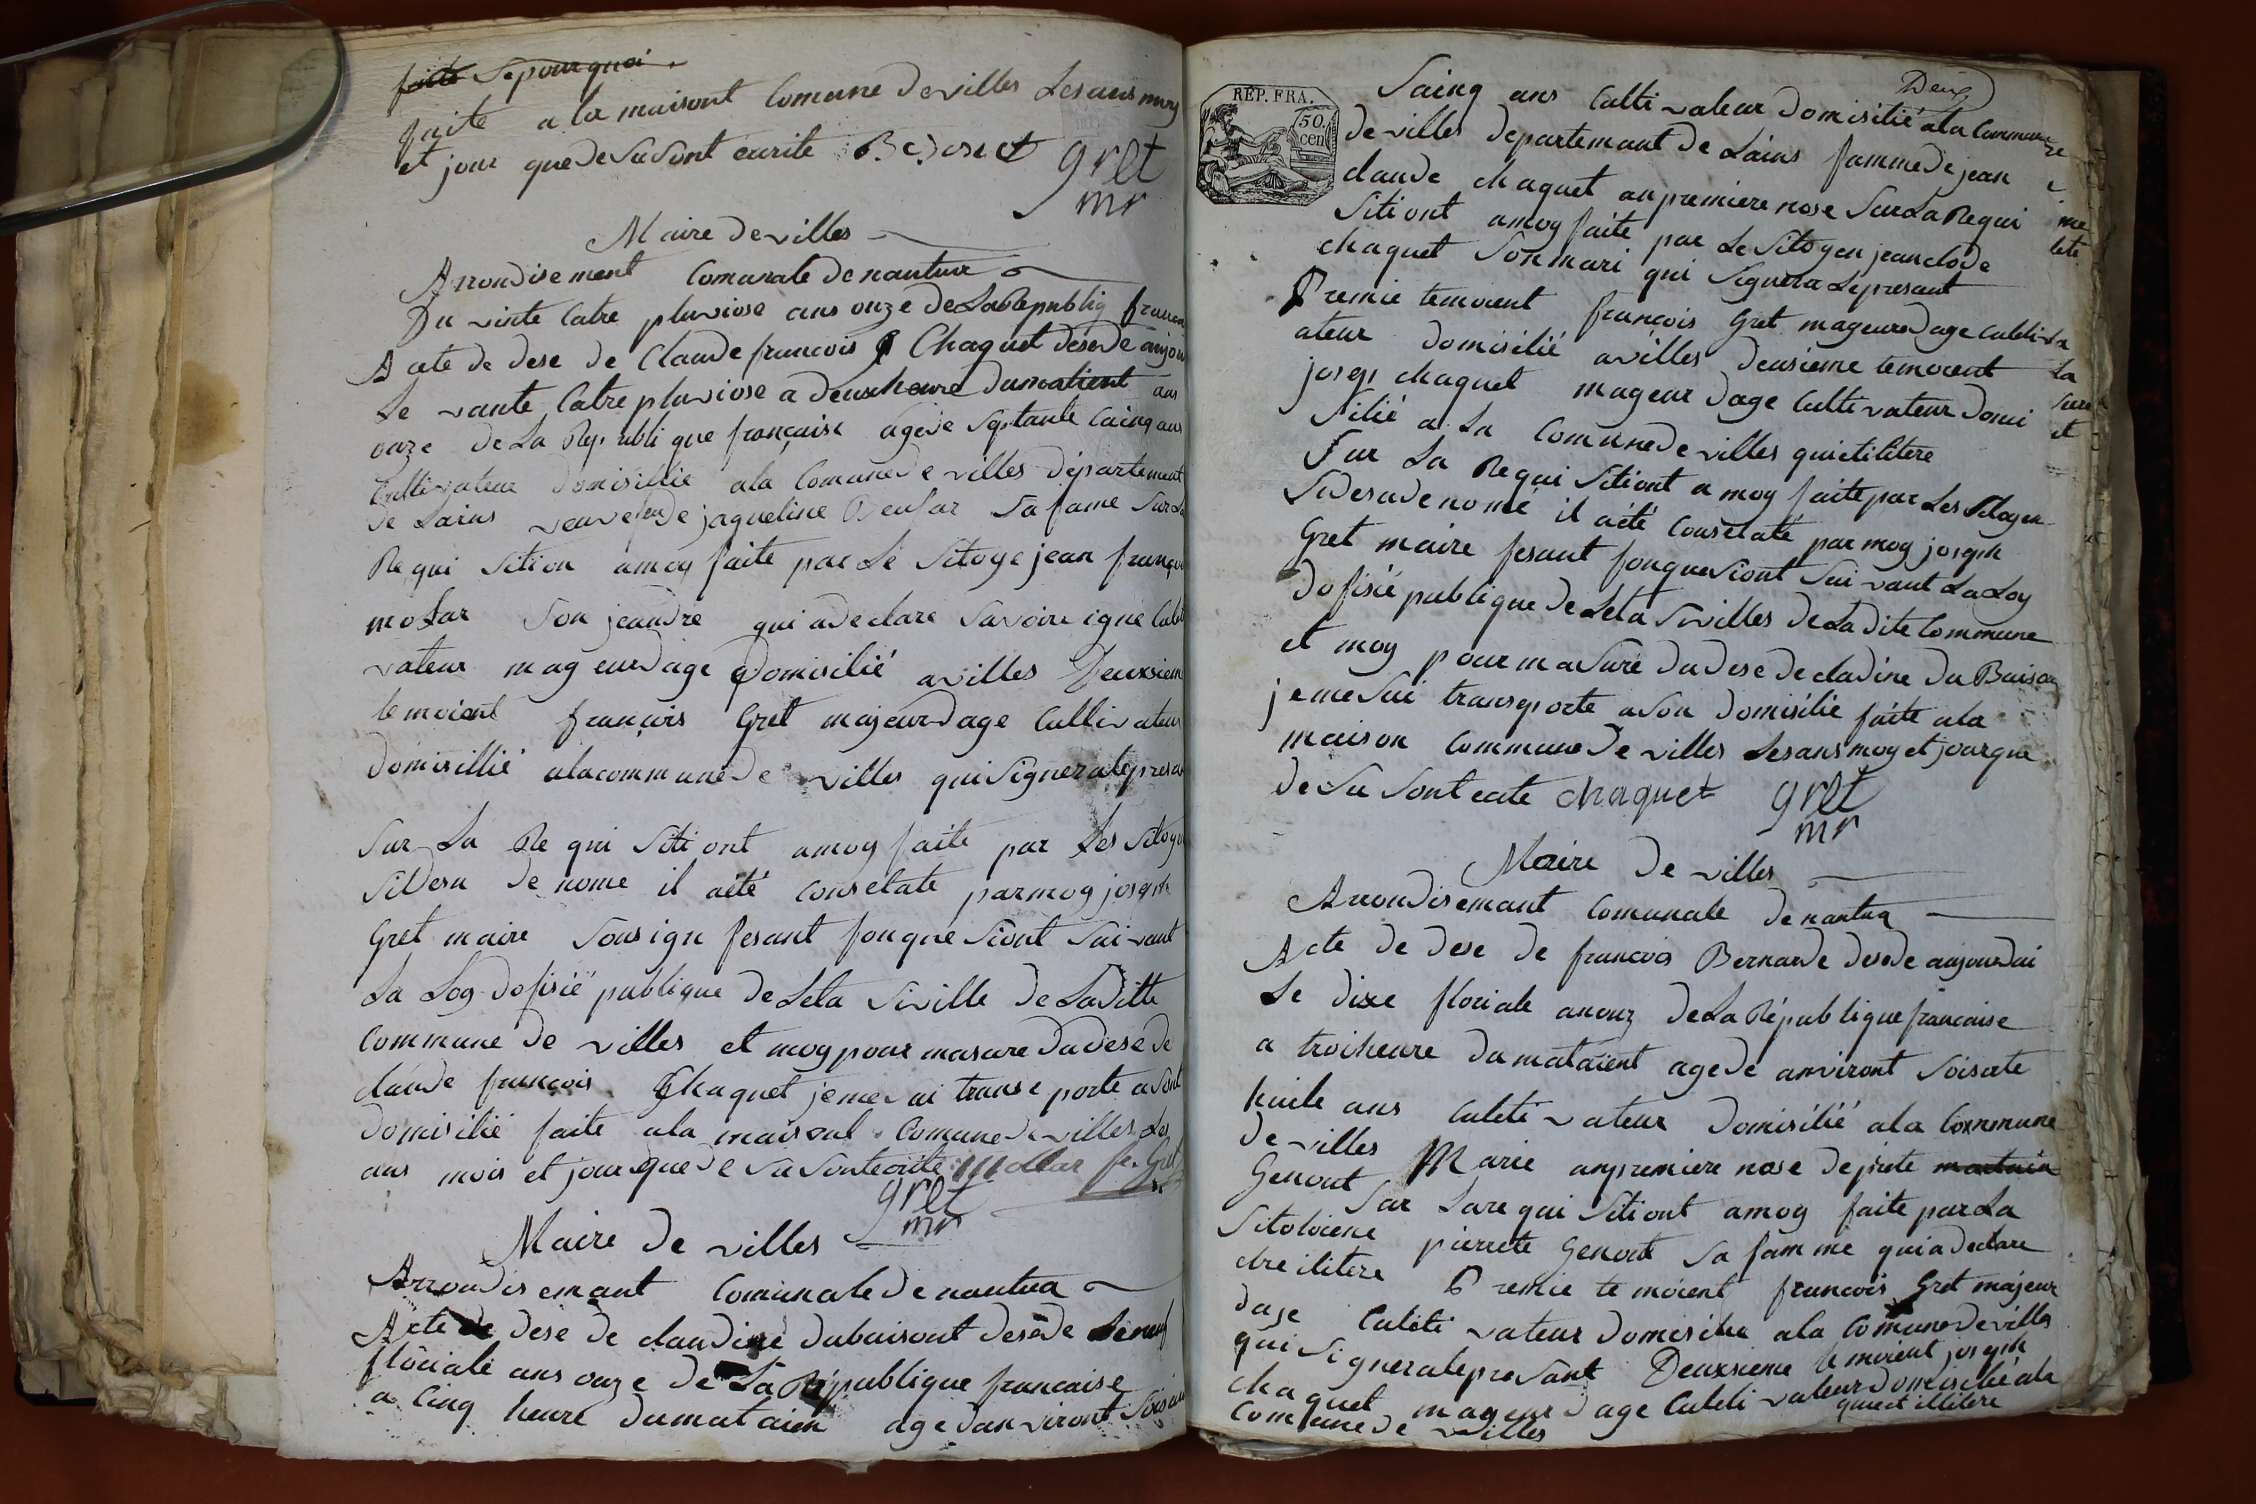 faite Sepourquoi
faite a la maisont Comune de villes Les ans moy
et jour que de Su Sont écrite Bedonet gret
mr
Maire de villes
Arrondisement Comunale de nantua
Du vinte Catre pluviose ans onze de La Republiq
Acte de dese de Claude francois Chaquet désede
Le vante Catre pluviose a deux heure dumatient ans
onze de La Republi que française agé de Sptante Cainq ans
Cultivateur domisillié ala Comune de villes département
de Lains veuve de jaqueline Sa fame Sur La
Re qui Sition amoy faite par Le Sitoye jean françoi
molar Son jeandre qui a declare Savoire igné Culti
vateur mageur dage Domisilié a villes Deuxsieme
temoient françois Gret majeur dage Cultivateur
domisillié alacommune de villes qui Signera lepresa
Sur La Re qui Siti ont amoy faite par Les Sitoye
Sidesu de nome il aeté Consetate parmoy joseph
Gret maire Sousign fesant fonque Siont Sui vant
La Loy dofisié publique de Leta Siville de Laditte
Commune de villes et moy pour masure du dese de
claude françois Chaquet jeme sui transe porte a Sont
domisilié faite ala maisont Comune de villes Les
ans mois et jour que de Su Sont ecrite mollar fr. Gret
gret
mr
Maire de villes
Arrondis emant Comunale de nantua
Acte de dese de claudine dubuisont deséde Le neuf
floriale ans onze de La République francaise
a Cinq heure dumataien age danviront
Deux
RÉP. FRA.
50.
cen
Sainq ans Culti vateur domisilié ala Commune
de villes departemant de Lains famme de jean
claude chaquet anpremiere nose Sur La Re qui
Siti ont amoy faite par Le Sitoyen jean clode
chaquet Son mari qui Signera Lepresant
Premie temoient françois Gret mageur dage Cultiv
ateur domisilié a villes deusieme temoient
josep chaquet mageur dage Cultivateur domi
silié a La Comune de villes quietilitere
Sur La Re qui Siti ont a moy faite par Les Sitoyen
Sidesu de nomé il aété Consetaté par moy joseph
Gret maire fesant fonque Siont Sui vant La Loy
dofisié publique de Leta Sivilles de La dite Commune
et moy pour ma Sure du dese de cladine du Buison
jeme Sui transporte a Son domisilié faite ala
maison Commune de villes Les ans moy et jour que
de Su Sont ecrite chaquet gret
mr
Maire de villes
Arrondisemant Comunale de nantua
Acte de dese de francois Bernarde deséde aujourdui
Le dixe floriale anonz de La République francaise
a troiheure du mataient age de anviront Soisante
huite ans Culeti vateur domisilié ala Commune
de villes Marie anpremiere nose de pierete
Genout Sur Lare qui Siti ont amoy faite par La
Sitoloiene pierete Genout Sa famme qui a declare
etre ilitere Premie te moient francois Gret majeur
dage Culeti vateur domisilie ala Comune de villes
qui Signera lepresant Deuxsieme te moient joseph
chaquet mageur dage Culeti vateur domisilié ala
Comune de villes quiest illitere